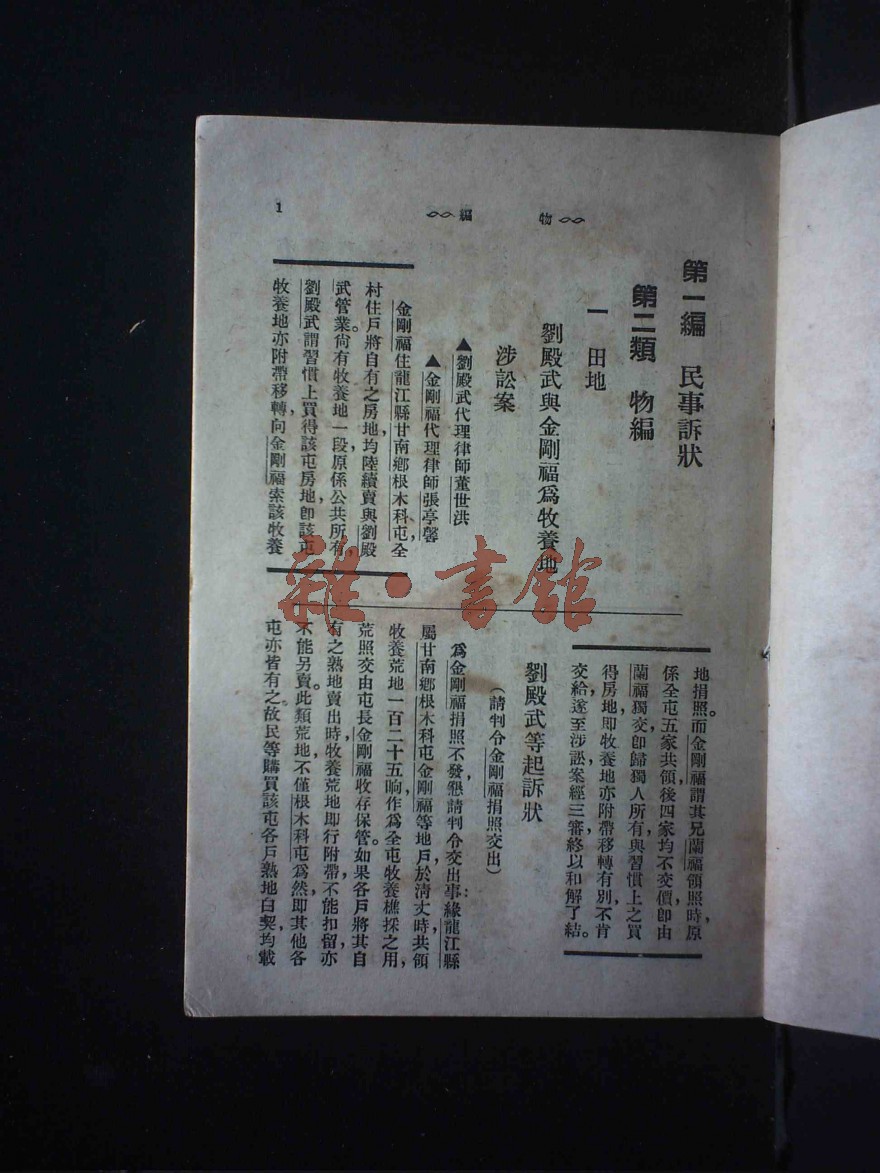 物編
1
第一編 民事訴狀
第二類 物編
一 田地
劉殿武與金剛福爲牧養地
涉訟案
▲劉殿武代理律師董世洪
▲金剛福代理律師張亭馨
金剛福住龍江縣甘南鄉根木科屯，全
村住戶將自有之房地均陸續賣與劉殿
武管業。尙有牧養地一段原係公共所有，
劉殿武謂習慣上買得該屯房地，卽該屯
牧養地亦附帶移轉，向金剛福索該牧養
地捐照。而金剛福謂其兄蘭福領照時，原
係全屯五家共領，後四家均不交價，卽由
蘭福獨交，卽歸獨人所有，與習慣上之買
得房地，卽牧養地亦附帶移轉有別，不肯
交給，遂至涉訟案經三審，終以和解了結。
劉殿武等起訴狀
（請判令金剛福捐照交出）
爲金剛福捐照不發，懇請判令交出事：緣龍江縣
屬甘南鄉根木科屯金剛福等地戶，於淸丈時，共領
牧養荒地一百二十五晌，作爲全屯牧養樵採之用，
荒照交由屯長金剛福收存保管。如果各戶將其自
有之熟地賣出時，牧養荒地卽行附帶，不能扣留，亦
不能另賣。此類荒地，不僅根木科屯爲然，卽其他各
屯亦皆有之。故民等購買該屯各戶熟地白契，均載
雜·書館